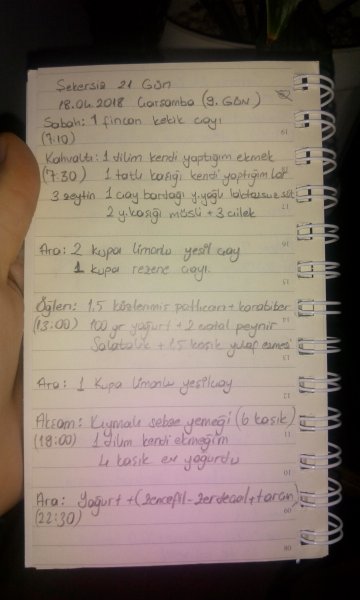 Şekersiz 21 Gün
18.04.2018 Çarşamba (9. GÜN)
Sabah: 1 fincan kekik çayı
(7.10)
Kahvaltı: 1 dilim kendi yaptığım ekmek
(7:30) 1 tatlı kaşığı kendi yaptığım
3 zeytin 1 çay bardağı y.yağlı laktozsuz süt
2 y.kaşığı müsli + 3 çilek
Ara: 2 kupa limonlu yeşil çay
1 kupa rezene çayı.
Öğlen: 1,5 közlenmiş patlıcan + karabiber
(13:00) 100 gr yoğurt + 2 çatal peynir
Salatalık + 1,5 kaşık yulaf ezmesi
Ara: 1 kupa limonlu yeşilçay
Akşam: Kıymalı sebze yemeği (6 kaşık)
(18:00) 1 dilim kendi ekmeğim
4 kaşık ev yoğurdu
Ara: Yoğurt + (zencefil - zerdeçal + tarçın)
(22:30)